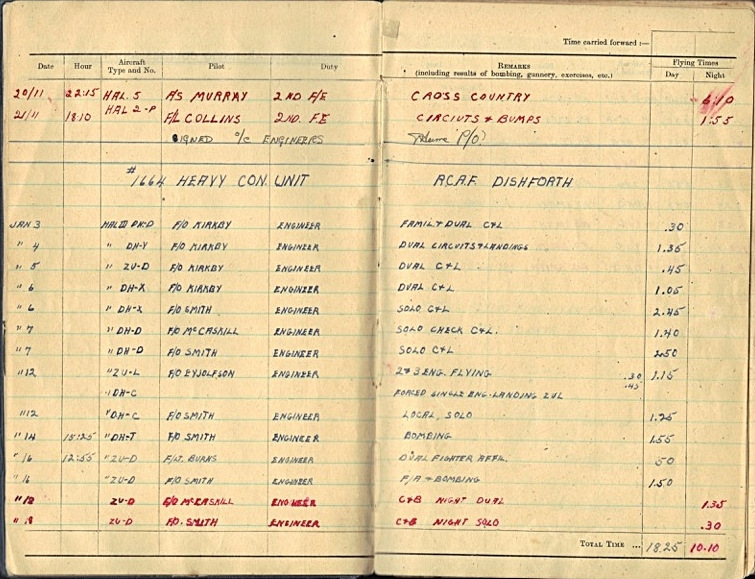 Time carried forward :—
Date Hour Aircraft Type and No. Pilot Duty REMARKS (including results of bombing, gunnery, exercises, etc.) Flying Times Day Night
20/11 22:15 HAL. 5 F/S MURRAY 2ND F/E CROSS COUNTRY 6:10
21/11 18:10 HAL 2-P F/L COLLINS 2ND. F.E CIRCIUTS & BUMPS 1:55
SIGNED o/c ENGINEERS P/O
#1664 HEAVY CON. UNIT R.C.A.F. DISHFORTH
JAN 3 HAL III F/O KIRKBY ENGINEER FAMIL & DUAL C&L .30
" 4 " DH-Y F/O KIRKBY ENGINEER DUAL CIRCUITS & LANDINGS 1.35
" 5 " ZU-D F/O KIRKBY ENGINEER DUAL C&L .45
" 6 " DH-X F/O KIRKBY ENGINEER DUAL C&L 1.05
" 6 " DH-X F/O SMITH ENGINEER SOLO C&L 2.45
" 7 " DH-D F/O McCASKILL ENGINEER SOLO CHECK C&L. 1.40
" 7 " DH-D F/O SMITH ENGINEER SOLO C&L 2.50
" 12 " ZU-L F/O EYJOLFSON ENGINEER 2 & 3 ENG. FLYING .30 1.15
" DH-C FORCED SINGLE ENG. LANDING ZUL .45
" 12 " DH-C F/O SMITH ENGINEER LOCAL, SOLO 1.25
" 14 15:25 " DH-T F/O SMITH ENGINEER BOMBING 1.55
" 16 12:55 " ZU-D F/LT. BURNS ENGINEER DUAL FIGHTER AFFIL. 50
" 16 " ZU-D F/O SMITH ENGINEER F/A & BOMBING 1.50
" 18 ZU-D F/O McCASKILL ENGINEER C&B NIGHT DUAL 1.35
" 18 ZU-D F/O. SMITH ENGINEER C&B NIGHT SOLO .30
TOTAL TIME ... 18.25 10.10